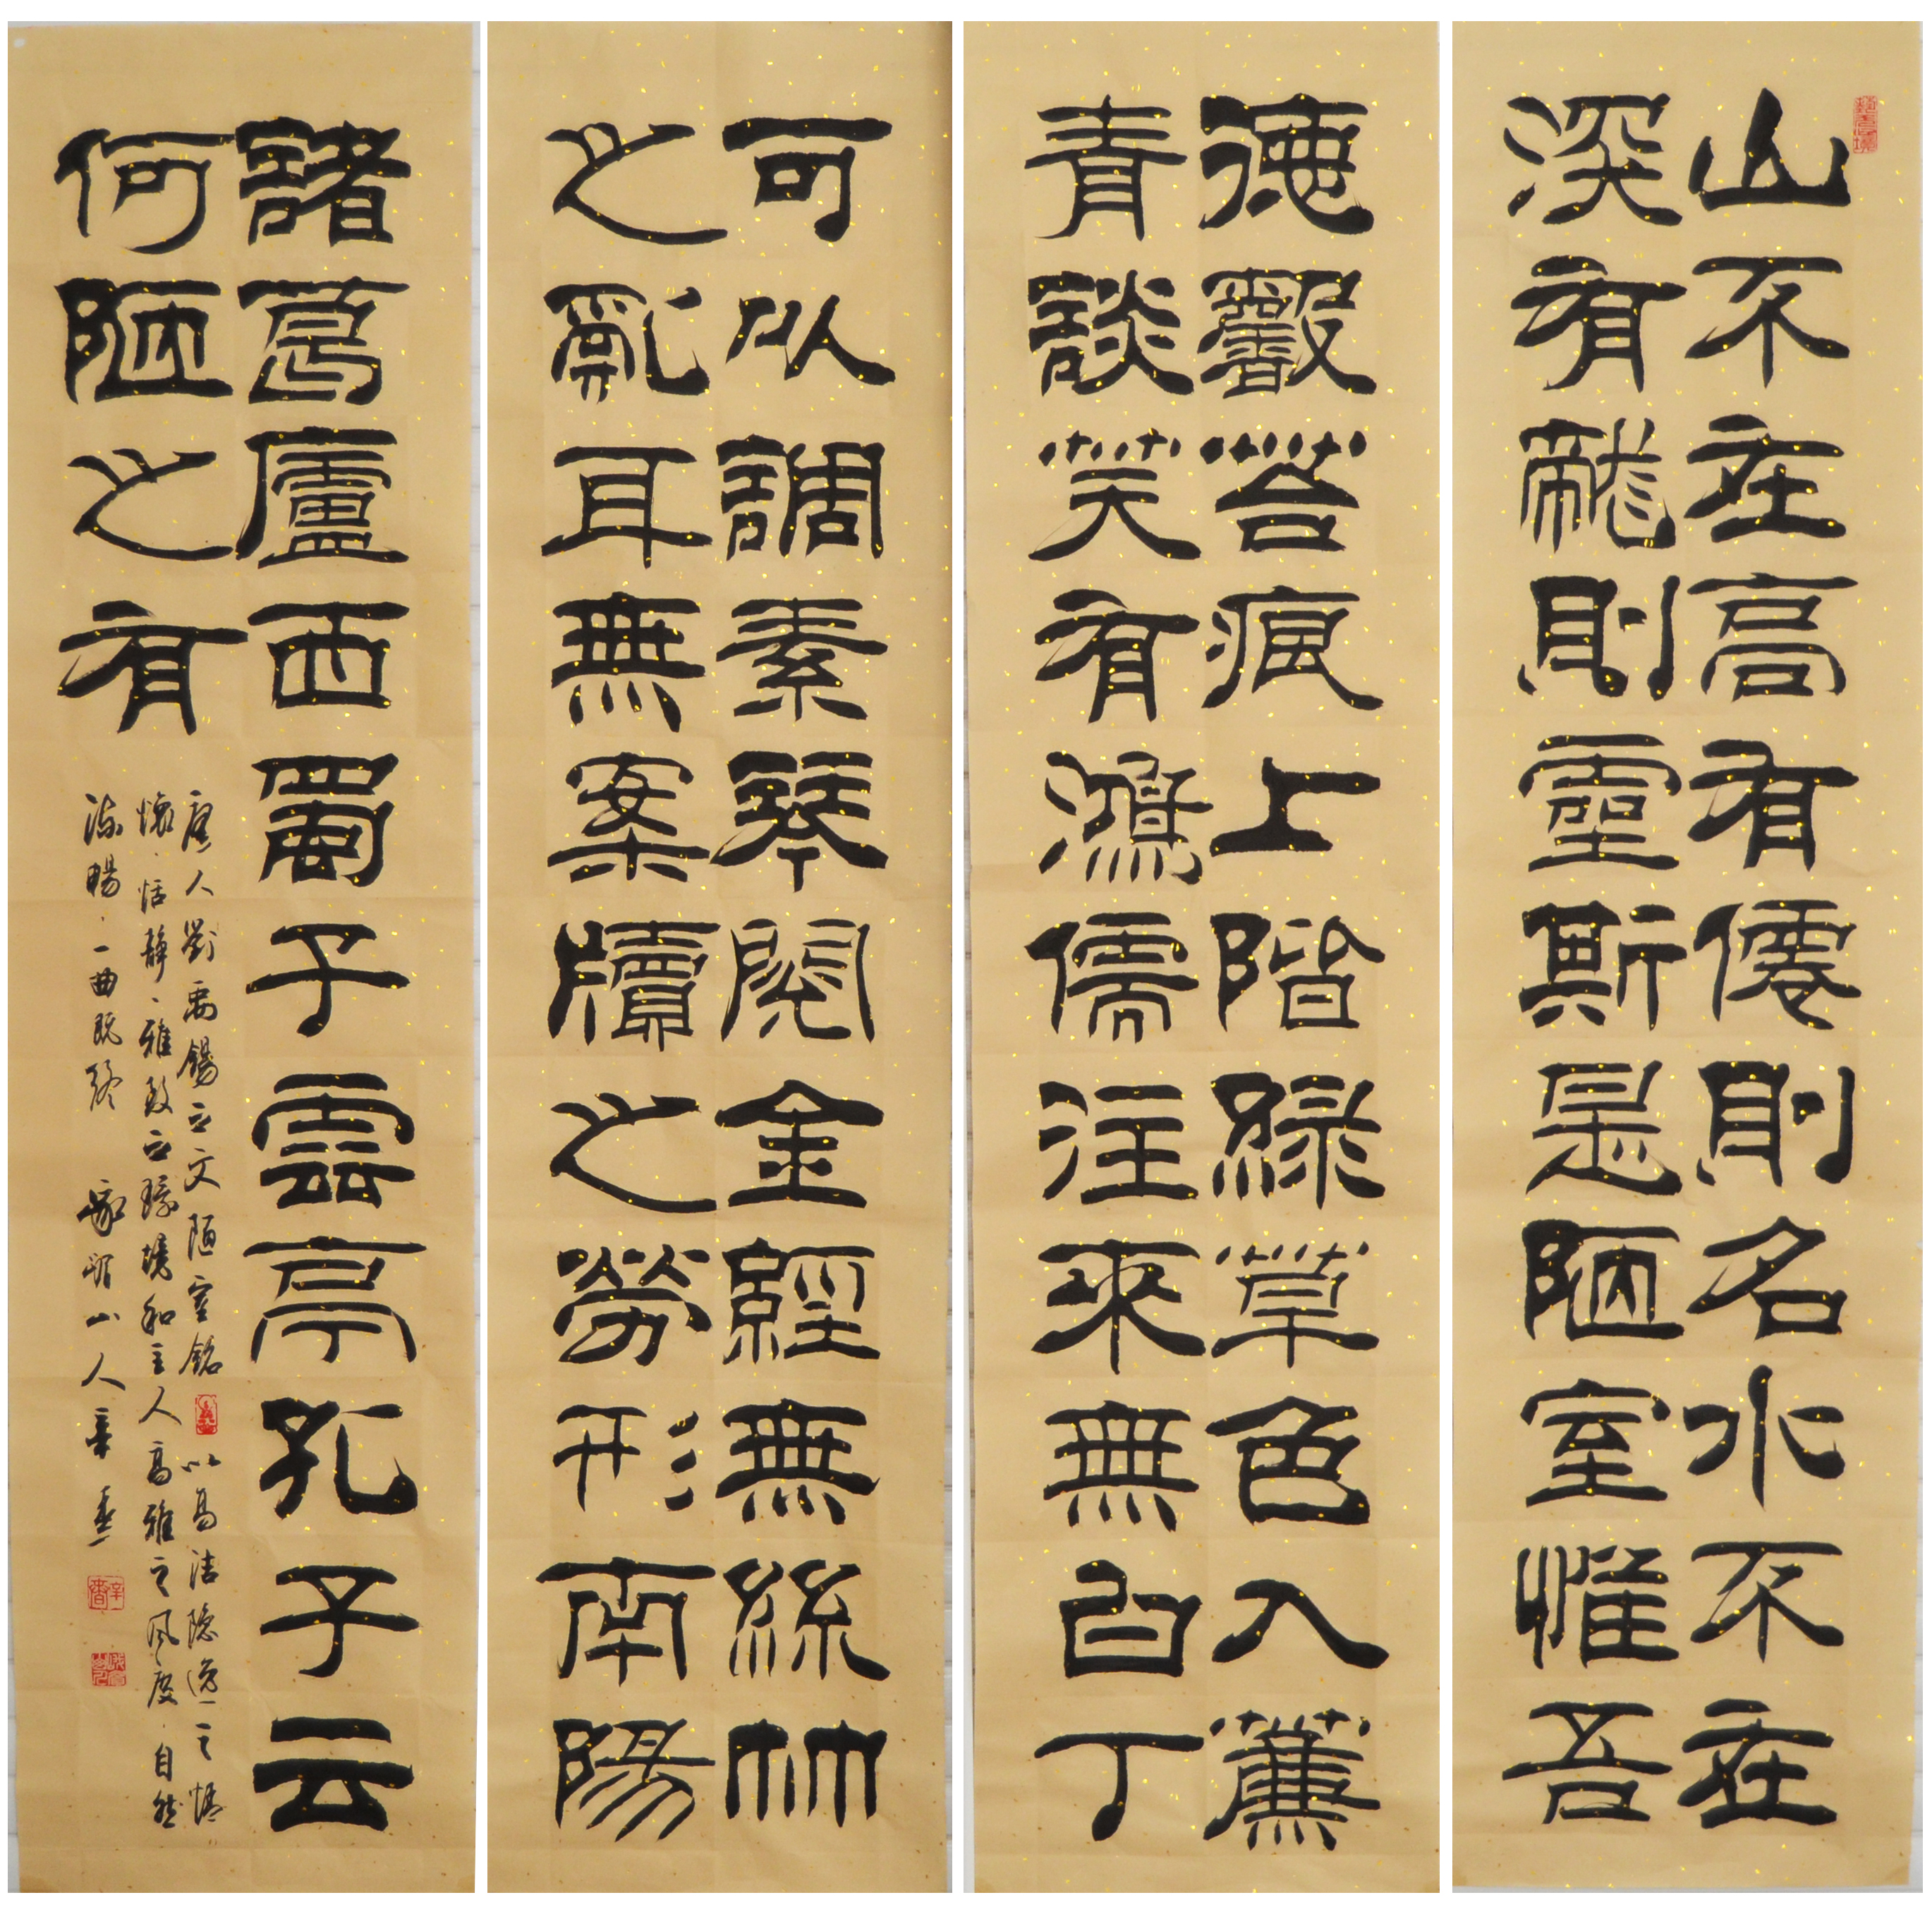 山不在高有僊則名水不在
深有龍則靈斯是陋室惟吾
德馨苔痕上階綠草色入簾
青談笑有鴻儒往來無白丁
可以調素琴閱金經無絲竹
之亂耳無案牘之勞形南陽
諸葛廬西蜀子雲亭孔子云
何陋之有
唐人劉禹錫之文陋室銘以高洁隐逸之情
懷、恬靜、雅致之環境和主人高雅之風度、自然
流暢、一曲既終 峨嵋山人辛